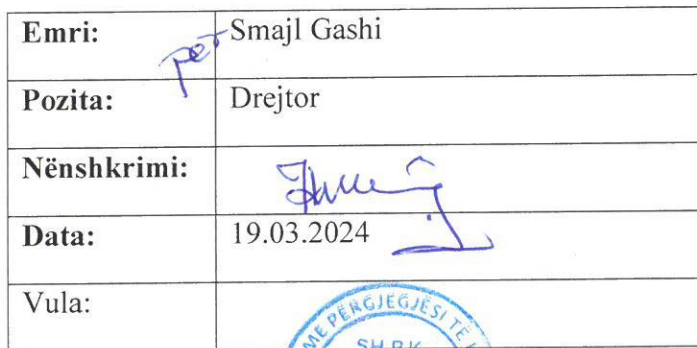 Emri: Smajl Gashi
për
Pozita: Drejtor
Nënshkrimi:
Data: 19.03.2024
Vula:
ME PËRGJEGJËSI TË
SH.P.K